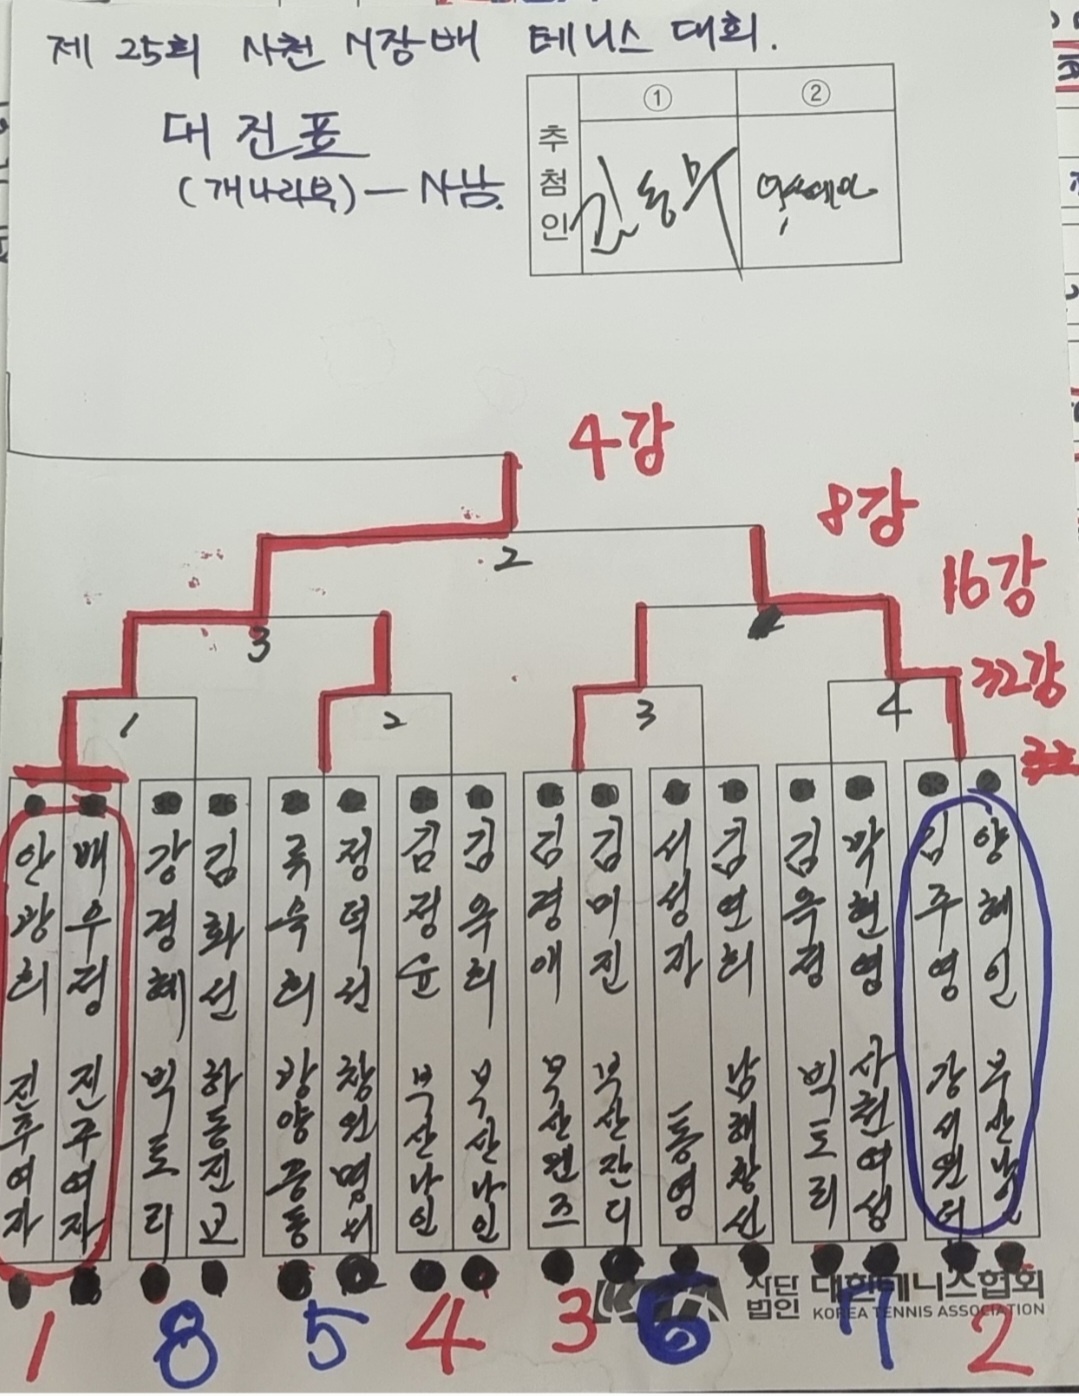 제 25회 사천 시장배 테니스 대회.
대 진 표
(개나리부) — 사남.
추첨인
① ②
김동
4강
8강
16강
32강
2
3
1 2 3 4
안광희 진주여자
배우정 진주여자
강경혜 빅토리
김화선 하동진교
류욱희 광양중동
정덕선 창원명서
김정윤 부산나인
김옥희 부산나인
김경애 부산원즈
김미진 부산잔디
서성자 통영
김연희 남해창선
김옥경 빅토리
박현영 사천여성
김주영 강서윈터
양혜인 부산
사단법인 대한테니스협회
KOREA TENNIS ASSOCIATION
1 8 5 4 3 6 7 2